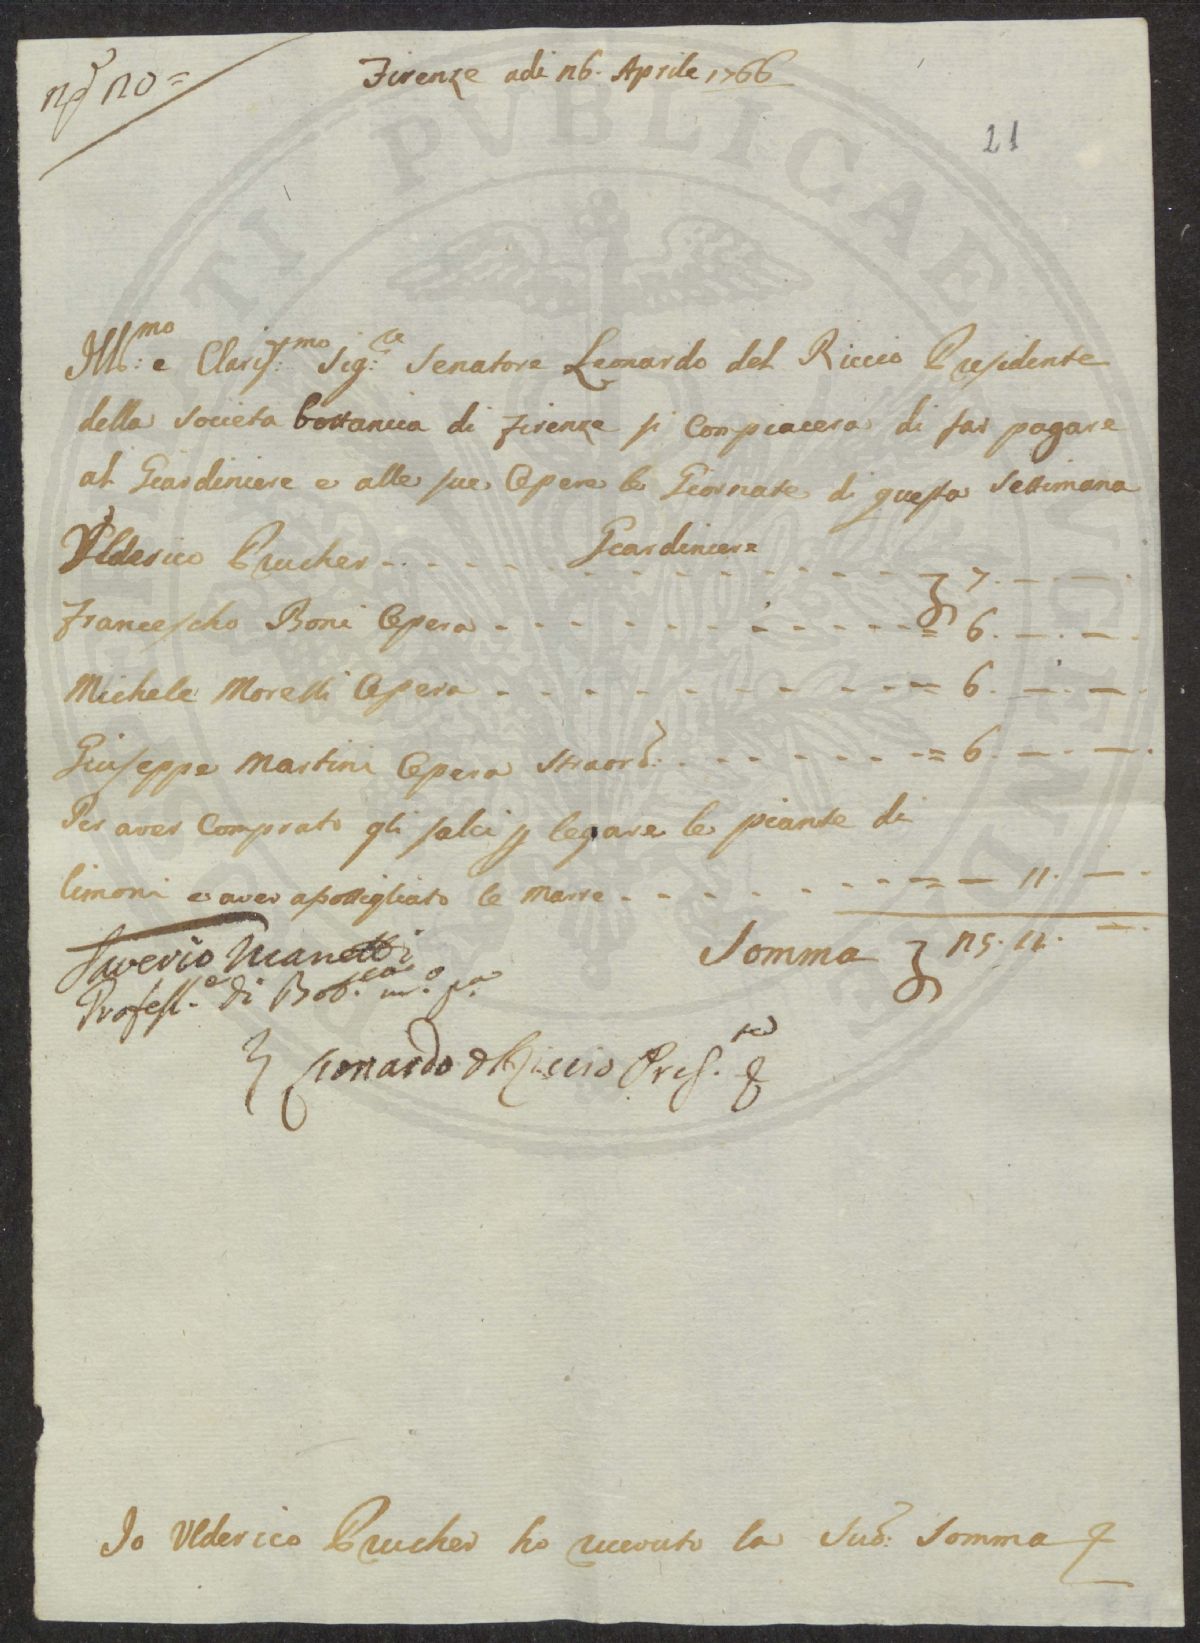 n° 20=
Firenze adi 26. Aprile 1766
21
Ill:mo e Claris:mo Sig:re Senatore Leonardo del Riccio Presidente
della Societa bottanica di Firenze si Compiacera di far pagare
al Giardiniere e alle sue Opere le Giornate di questa Settimana
Ulderico Prucher - - - Giardiniere - - - 7. — . — .
Francescho Boni Opera - - - = 6. — . — .
Michele Morelli Opera - - - = 6. — . — .
Giuseppe Martini Opera Straord: - - - = 6. — . — .
Per aver Comprato gli salci p legare le piante di
limoni e aver apottigliato le Marre - - - = — 11. — .
Saverio Manetti
Profess.e di Bot.ca
Somma 25. 11. — .
Lionardo del Riccio Pres.te
Io Ulderico Prucher ho riceuto la Sud: Somma
PUBLICAE